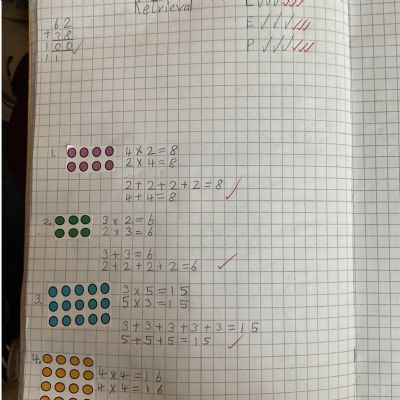 Retrieval
62
+38
100
11
E
P
1. 4 x 2 = 8
2 x 4 = 8
2 + 2 + 2 + 2 = 8
4 + 4 = 8
2. 3 x 2 = 6
2 x 3 = 6
3 + 3 = 6
2 + 2 + 2 + 2 = 6
3. 3 x 5 = 15
5 x 3 = 15
3 + 3 + 3 + 3 + 3 = 15
5 + 5 + 5 = 15
4. 4 x 4 = 16
4 x 4 = 16